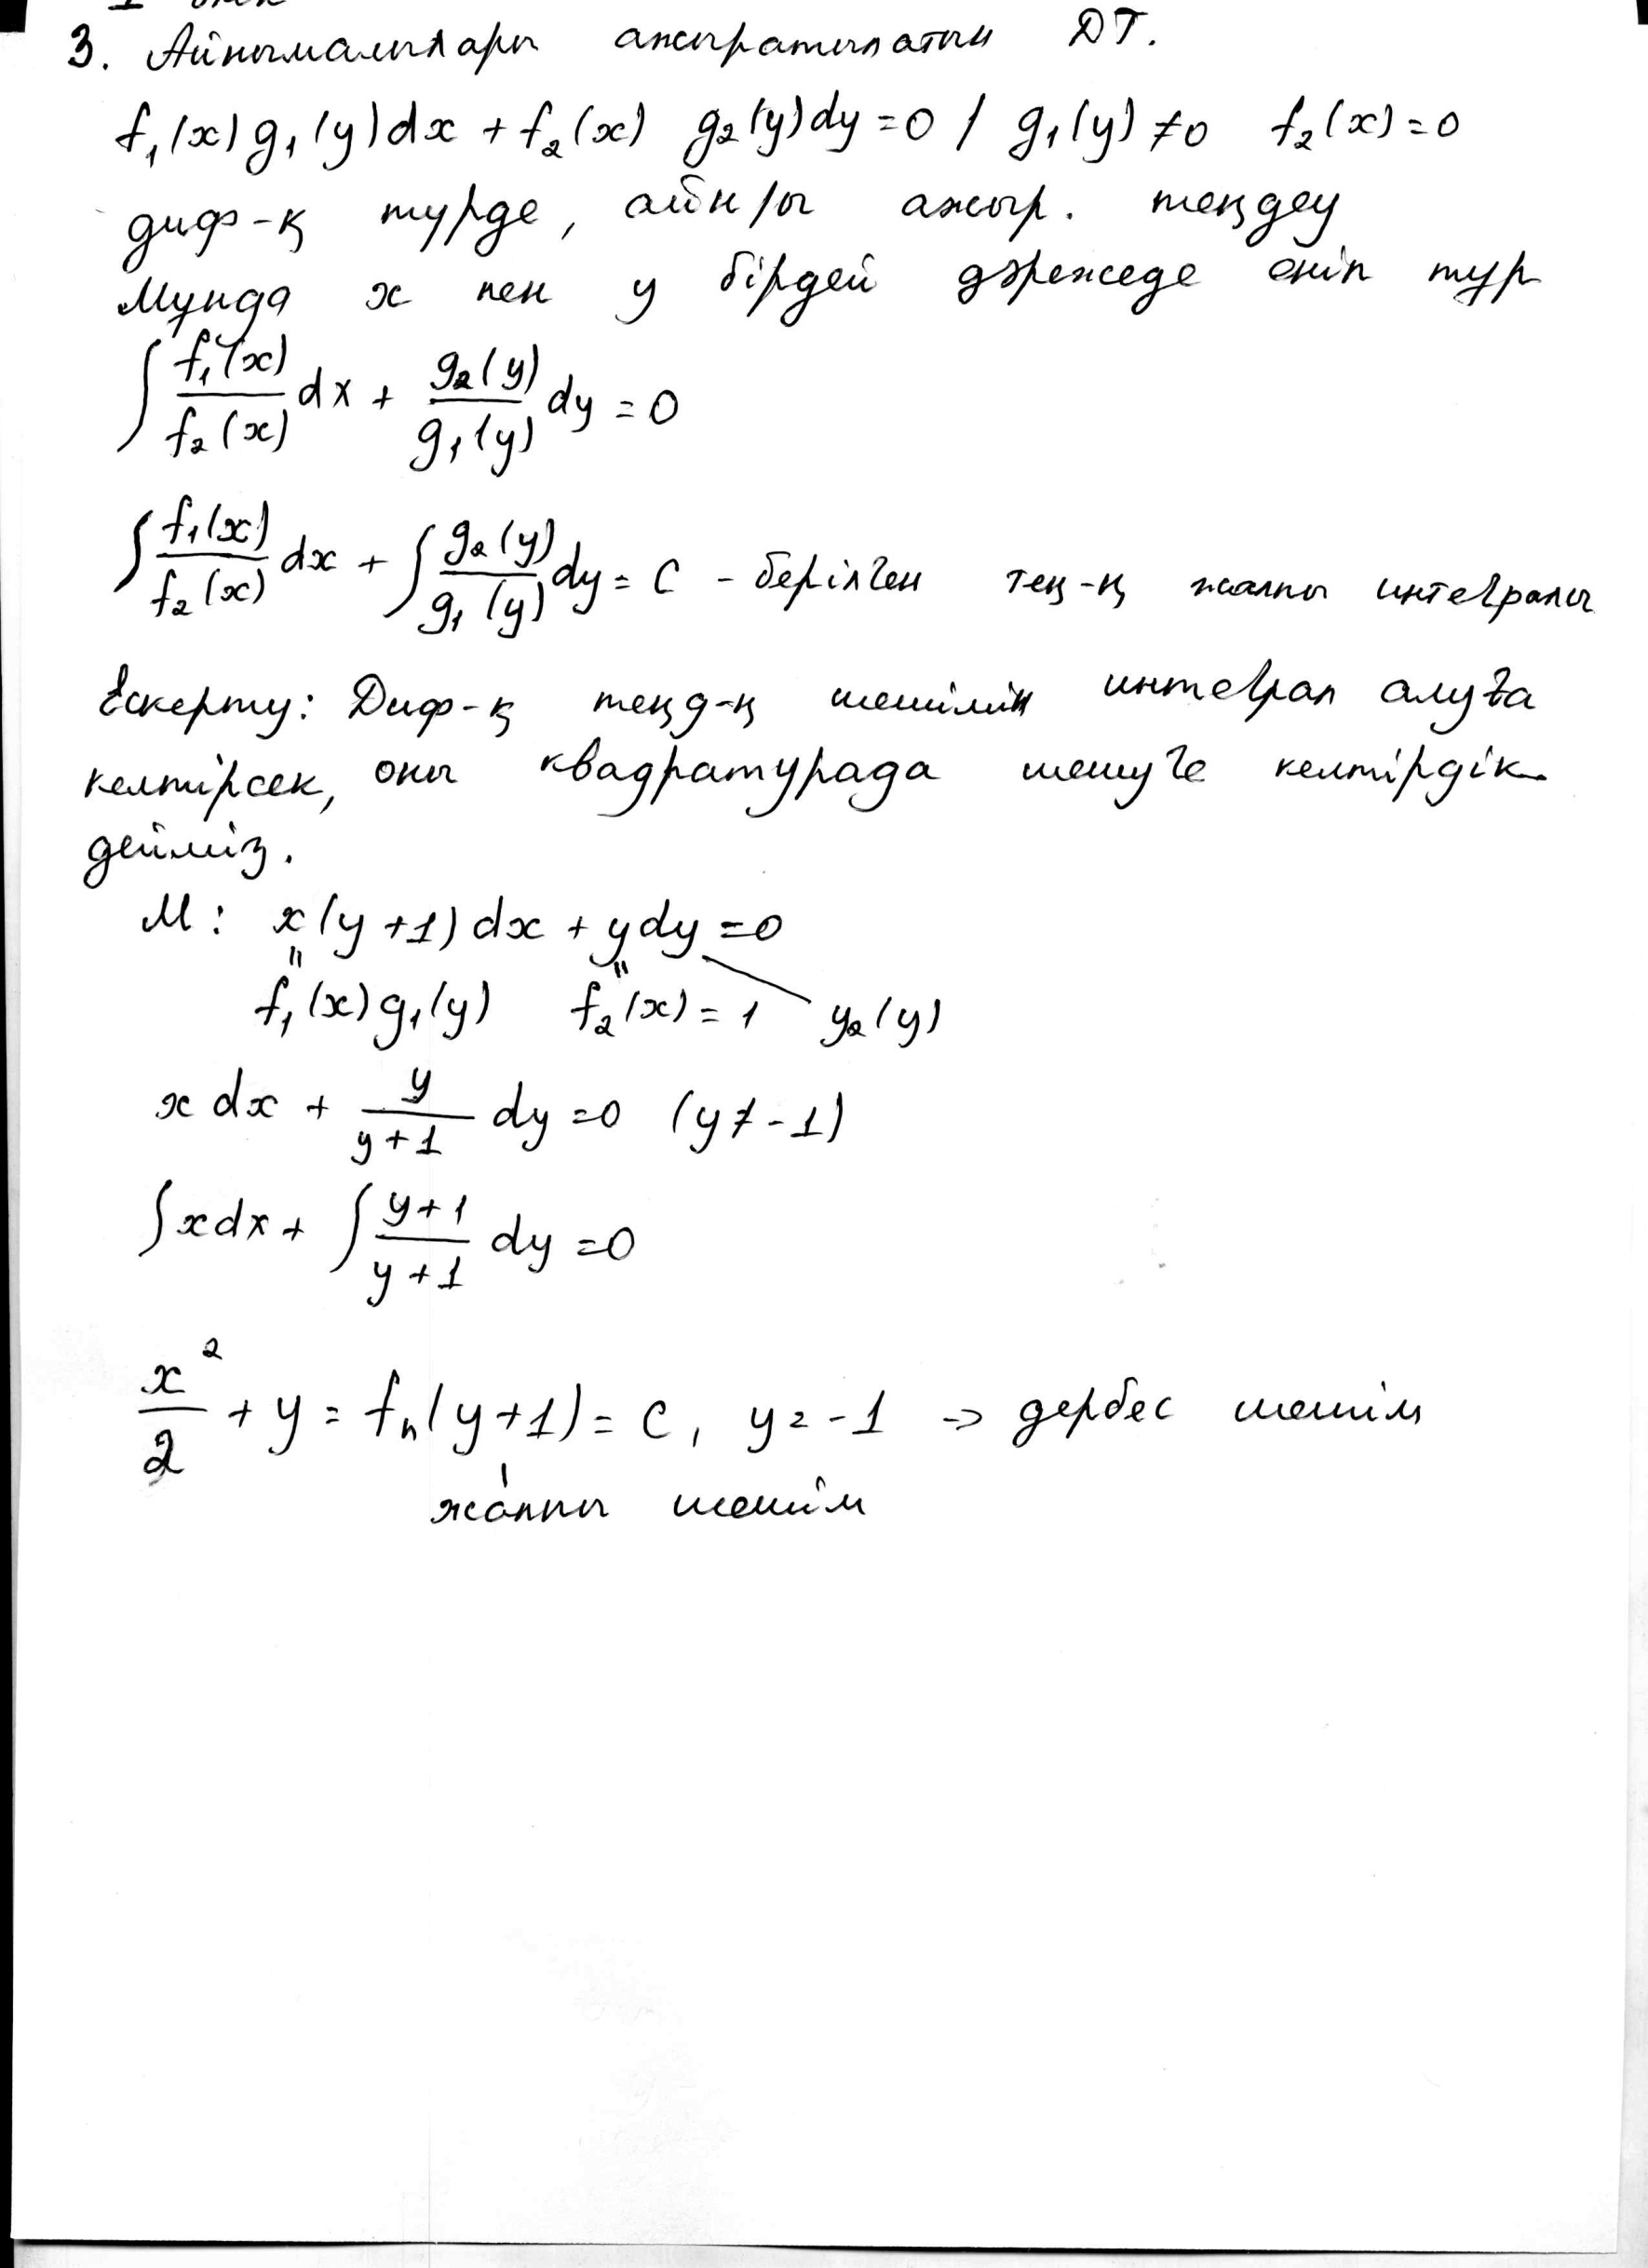 3. Айнымалылары ажыратылатын ДТ.
f₁(x) g₁(y)dx + f₂(x) g₂(y)dy = 0 / g₁(y) ≠ 0 f₂(x) = 0
диф-қ түрде, айн/ы ажыр. теңдеу
Мұнда x пен y бірдей дәрежеде еніп тұр
∫ f₁(x)/f₂(x) dx + g₂(y)/g₁(y) dy = 0
∫ f₁(x)/f₂(x) dx + ∫ g₂(y)/g₁(y) dy = C - берілген тең-ң жалпы интегралы
Ескерту: Диф-қ теңд-ң шешімін интеграл алуға
келтірсек, оны квадратурада шешуге келтірдік
дейміз.
М: x(y+1)dx + ydy = 0
" "
f₁(x) g₁(y) f₂(x) = 1 y₂(y)
x dx + y/(y+1) dy = 0 (y ≠ -1)
∫ x dx + ∫ (y+1)/(y+1) dy = 0
x²/2 + y = fn(y+1) = C, y = -1 → дербес шешім
жалпы шешім